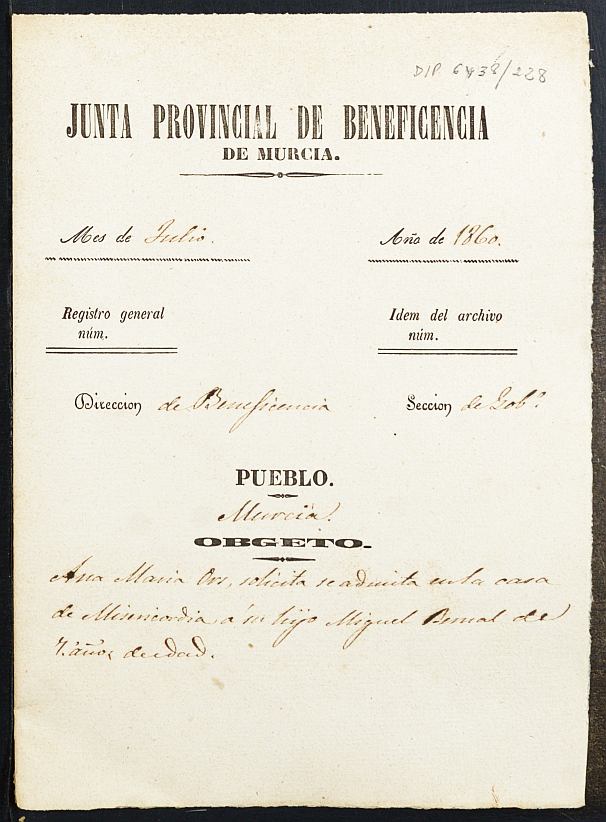 DIP 6438/228
JUNTA PROVINCIAL DE BENEFICENCIA
DE MURCIA.
Mes de Julio.
Año de 1860.
Registro general
núm.
Idem del archivo
núm.
Direccion de Beneficencia
Seccion de Gobº
PUEBLO.
Murcia.
OBGETO.
Ana Maria Ors, solicita se admita en la casa
de Misericordia á su hijo Miguel Bernal de
7. años de edad.